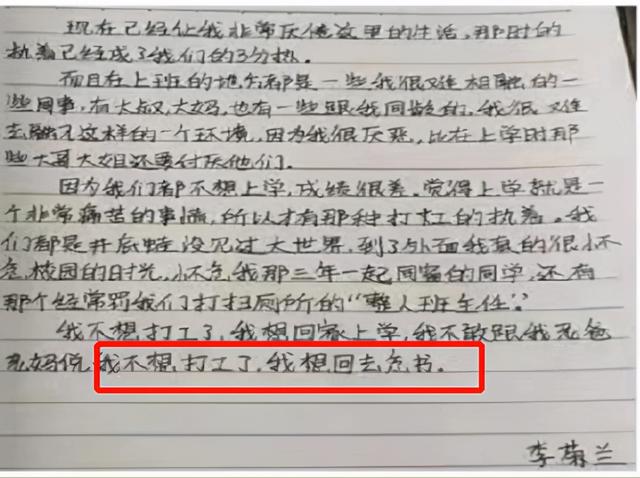 现在已经让我非常厌倦这里的生活,那时的
执着已经成了我们的3分热。
而且在上班的地方都是一些我很难相融的一
些同事,有大叔,大妈,也有一些跟我同龄的,我很难
去融入这样的一个环境,因为我很厌恶,比在上学时那
些大哥大姐还要讨厌他们。
因为我们都不想上学,成绩很差。觉得上学就是一
个非常痛苦的事情,所以才有那种打工的执着。我
们都是井底蛙没见过大世界,到了外面我真的很怀
念校园的时光,怀念我那三年一起同窗的同学,还有
那个经常罚我们打扫厕所的“整人班主任”。
我不想打工了,我想回家上学,我不敢跟我老爸
老妈说,我不想打工了,我想回去念书。
李菊兰